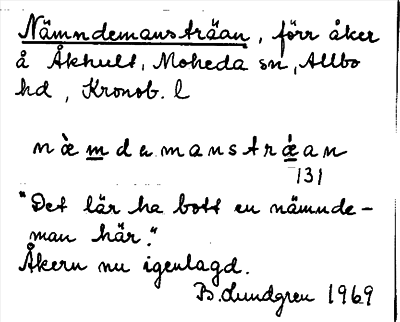 Nämndemansträan, förr åker
å Åkhult, Moheda sn, Allbo
hd, Kronob. l
næ̀mdemanstrǽan
131
"Det lär ha bott en nämnde-
man här."
Åkern nu igenlagd.
B. Lundgren 1969